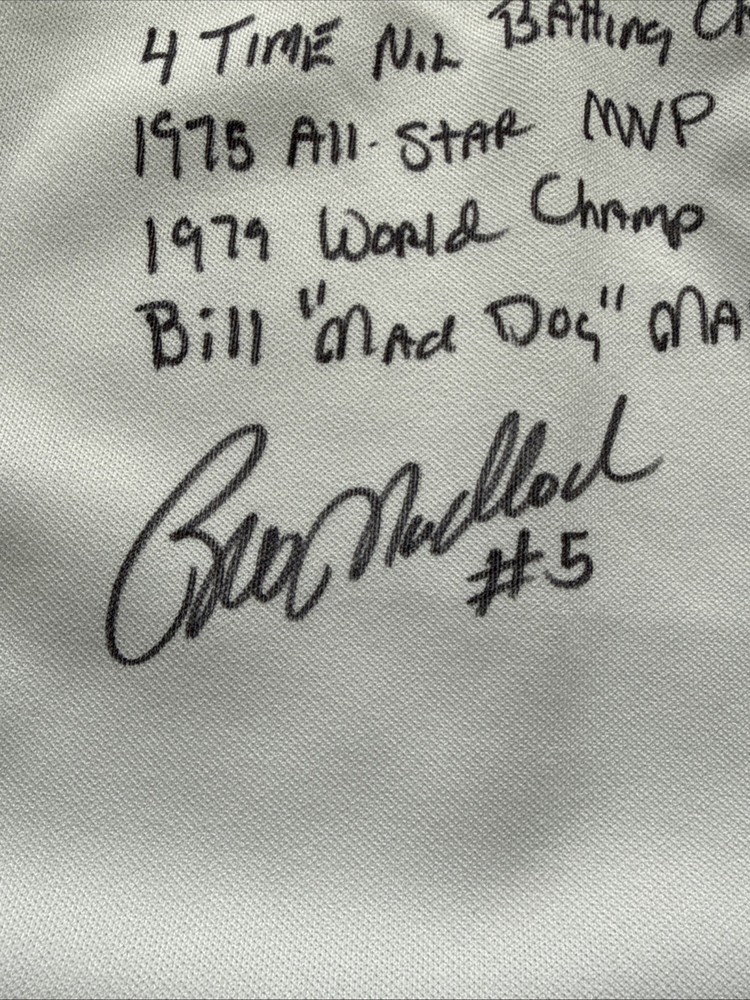 4 TIME N.L BAtting CH
1975 All-STAR MVP
1979 World CHAMP
Bill "MAd Dog" MA
Bill Madlock
#5